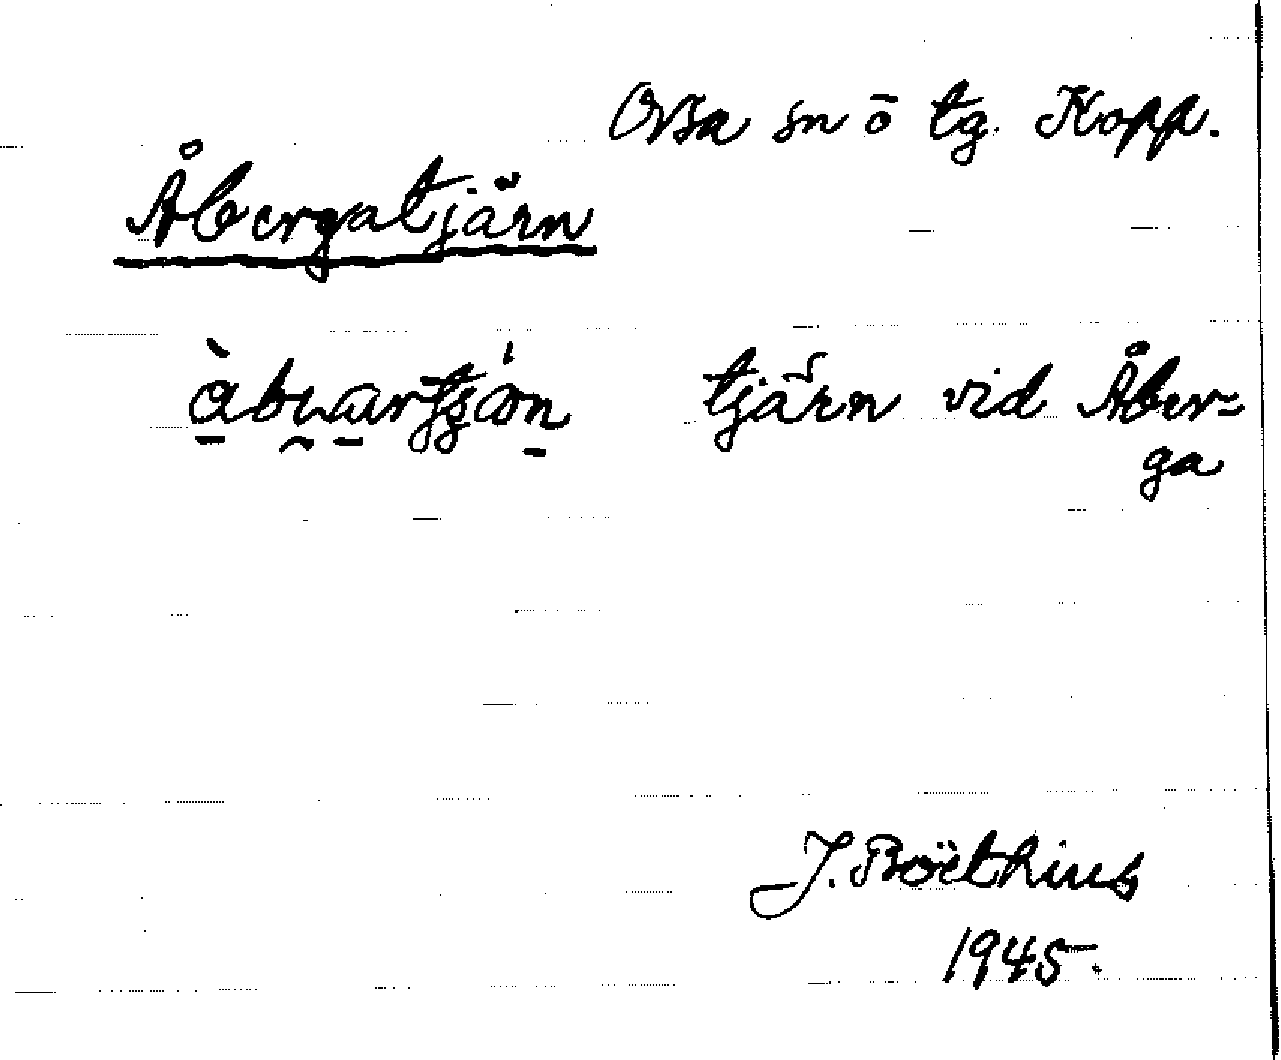 Orsa sn ö tg. Kopp.
Åbergatjärn
tjärn vid Åber-
ga
J. Boëthius
1945.